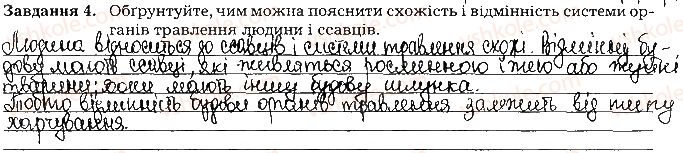 Завдання 4. Обґрунтуйте, чим можна пояснити схожість і відмінність системи ор-
ганів травлення людини і ссавців.
Людина відноситься до ссавців і системи травлення схожі. Відмінну бу-
дову мають ссавці, які живляться рослинною їжею або жуйні
тварини; вони мають іншу будову шлунка.
Тобто відмінність будови органів травлення залежить від типу
харчування.